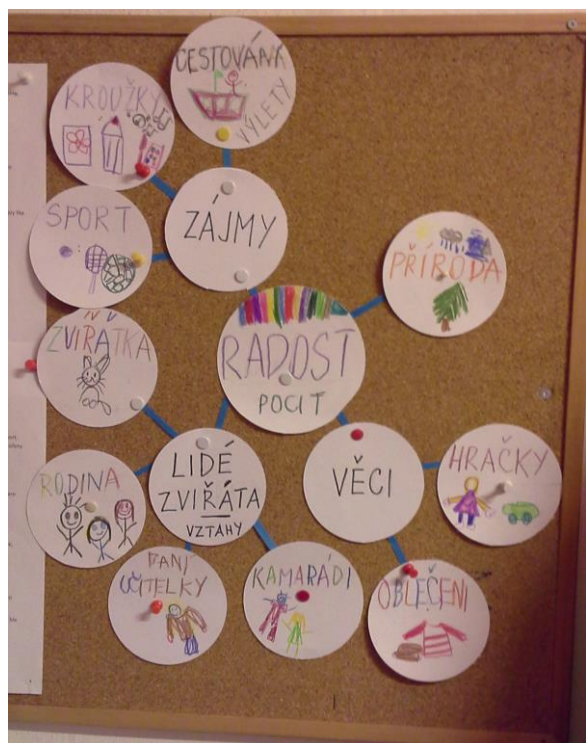 CESTOVÁNÍ
VÝLETY
KROUŽKY
SPORT
ZÁJMY
PŘÍRODA
ZVÍŘÁTKA
RADOST
POCIT
RODINA
LIDÉ
ZVIŘÁTA
VZTAHY
VĚCI
HRAČKY
PANÍ
UČITELKY
KAMARÁDI
OBLEČENÍ